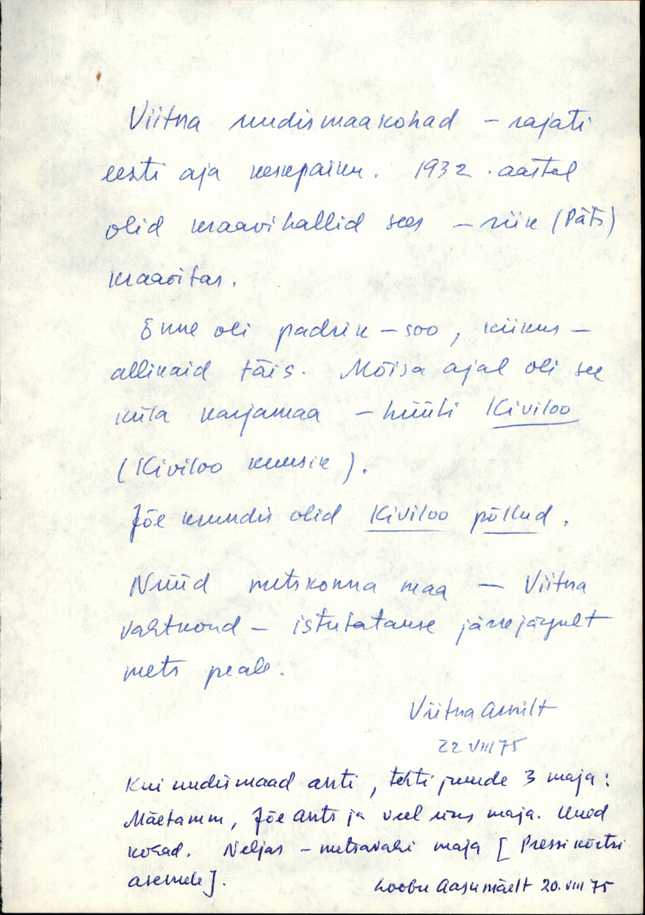 Viitna uudismaakohad – rajati
eesti aja keskpaiku. 1932. aastal
olid kraavihallid sees – riik (Päts)
kraavitas.
Enne oli padrik – soo, kiikus –
allikaid täis. Mõisa ajal oli see
küla karjamaa – hüüti Kiviloo
(Kiviloo kuusik).
Jõe krundis olid Kiviloo põllud.
Nüüd metskonna maa – Viitna
vahtkond – istutatakse järkjärgult
mets peale.
Viitna Arnilt
22 VIII 75
Kui uudismaad anti, tehti juurde 3 maja:
Mäetamm, Jõe Ants ja veel üks maja. Uued
kohad. Neljas – metsavahi maja [Pressi kõrtsi
asemele].
Loobu Aasumäelt 20. VIII 75